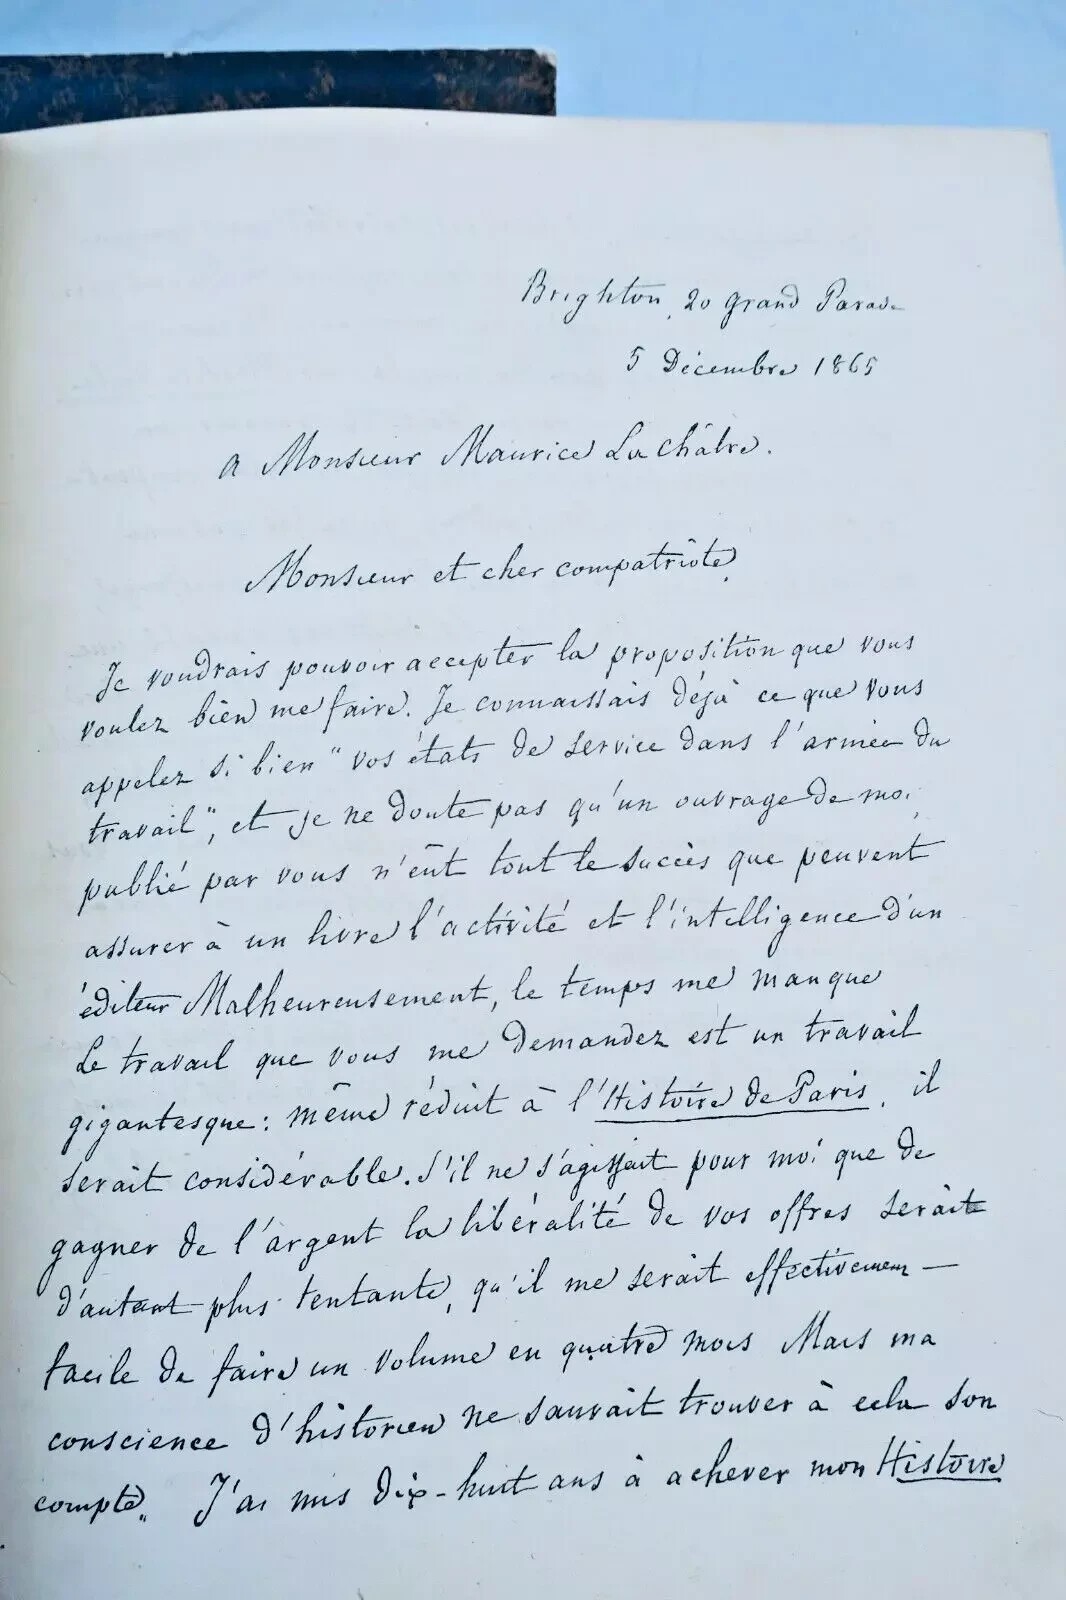 Brighton, 20 grand Parade
5 Décembre 1865
A Monsieur Maurice La Châtre.
Monsieur et cher compatriote,
Je voudrais pouvoir accepter la proposition que vous
voulez bien me faire. Je connaissais déjà ce que vous
appelez si bien "vos états de service dans l'armée du
travail", et je ne doute pas qu'un ouvrage de moi
publié par vous n'eût tout le succès que peuvent
assurer à un livre l'activité et l'intelligence d'un
éditeur Malheureusement, le temps me manque
Le travail que vous me demandez est un travail
gigantesque: même réduit à l'Histoire de Paris, il
serait considérable. S'il ne s'agissait pour moi que de
gagner de l'argent la libéralité de vos offres serait
d'autant plus tentante, qu'il me serait effectivement
facile de faire un volume en quatre mois Mais ma
conscience d'historien ne saurait trouver à cela son
compte. J'ai mis dix-huit ans à achever mon Histoire